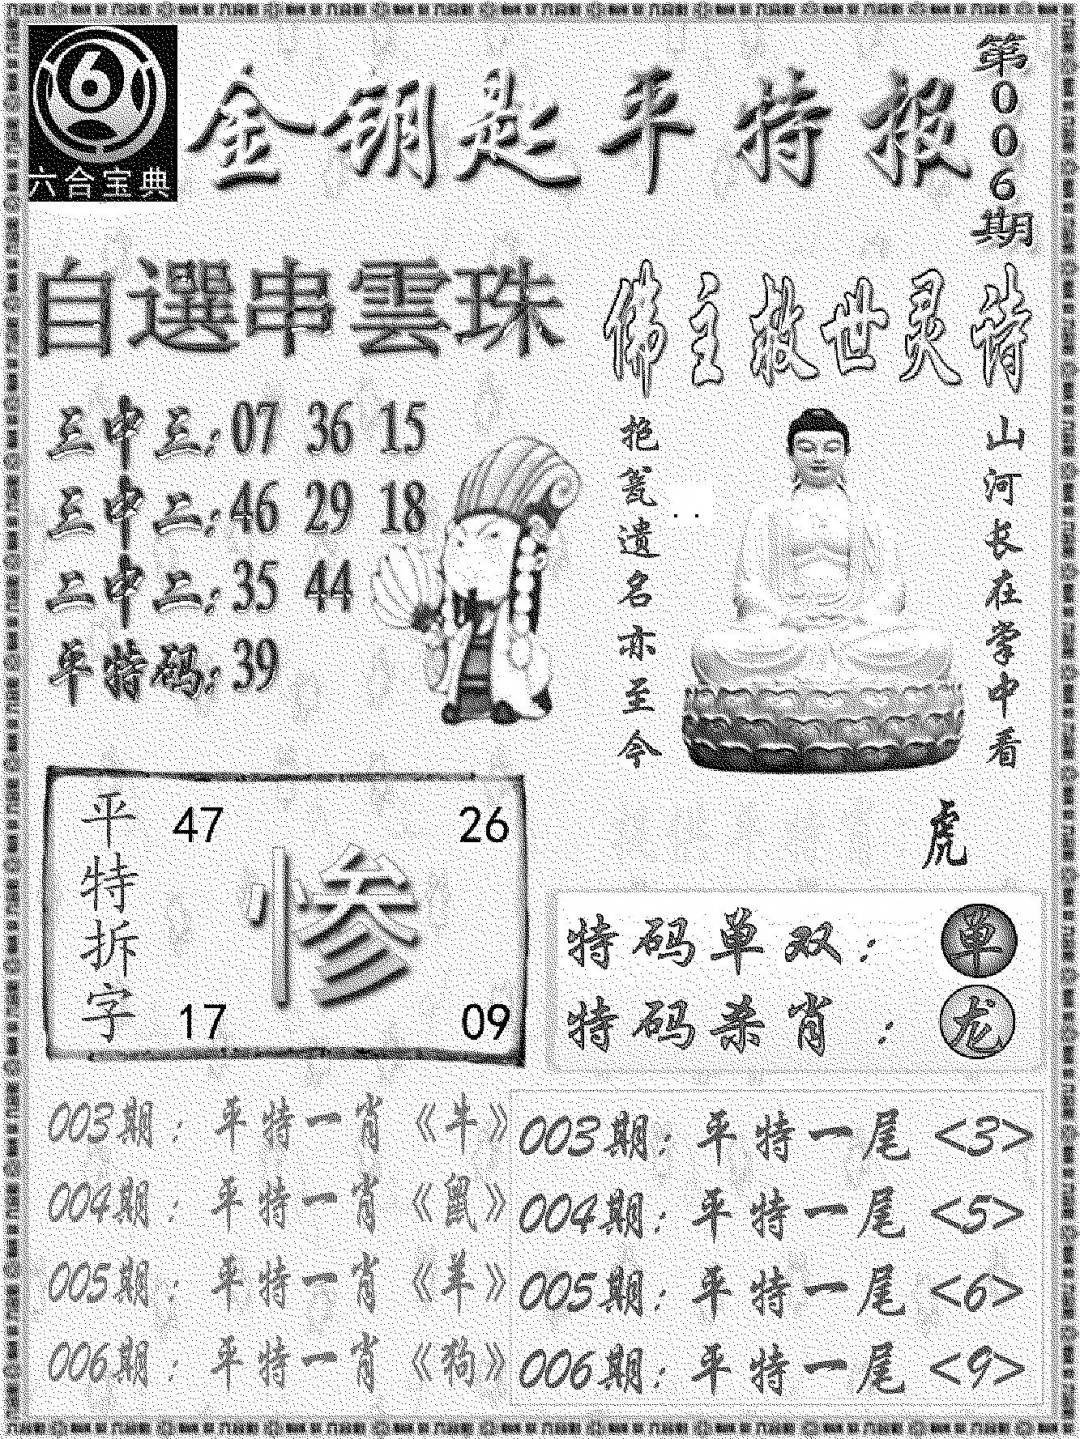 六合宝典
金钥匙平特报
第006期
自選串雲珠
三中三: 07 36 15
三中二: 46 29 18
二中二: 35 44
单特码: 39
佛主救世灵诗
山河长在掌中看
抱瓮遗名亦至今
虎
平特拆字
47 26
惨
17 09
特码单双: 单
特码杀肖: 龙
003期: 平特一肖《牛》
004期: 平特一肖《鼠》
005期: 平特一肖《羊》
006期: 平特一肖《狗》
003期: 平特一尾<3>
004期: 平特一尾<5>
005期: 平特一尾<6>
006期: 平特一尾<9>